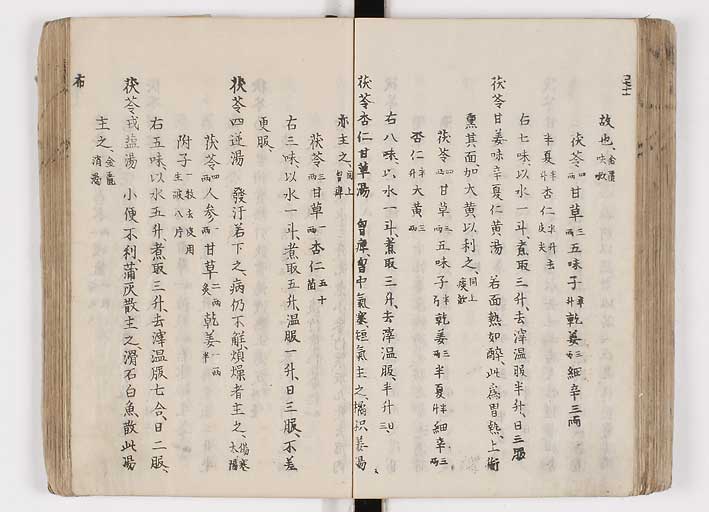 故也、金匱咳嗽
茯苓四両甘草三両五味子半升乾姜三両細辛三両
半夏半升杏仁半升去皮尖
右七味以水一斗、煮取三升、去滓温服半升、日三服
茯苓甘姜味辛夏仁黄湯　若面熱如醉、此為胃熱、上衝
熏其面、加大黄以利之、同上痰飲
茯苓四両甘草三両五味子半升乾姜三両半夏半升細辛三両
杏仁半升大黄三両
右八味、以水一斗、煮取三升、去滓温服、半升日三
茯苓杏仁甘草湯　胸痺、胸中氣塞、短氣主之、橘枳姜湯
亦主之、同上胸痺
茯苓三両甘草一両杏仁五十箇
右三味以水一斗、煮取五升、温服一升、日三服、不差
更服、
茯苓四逆湯　發汗若下之、病仍不解、煩燥者主之、傷寒太陽
茯苓四両人参一両甘草二両炙乾姜一両半
附子一枚去皮用生破八片
右五味以水五升、煮取三升、去滓温服七合、日二服、
茯苓戎盐湯　小便不利、蒲灰散主之、滑石白魚散此湯
主之、金匱消渇
布